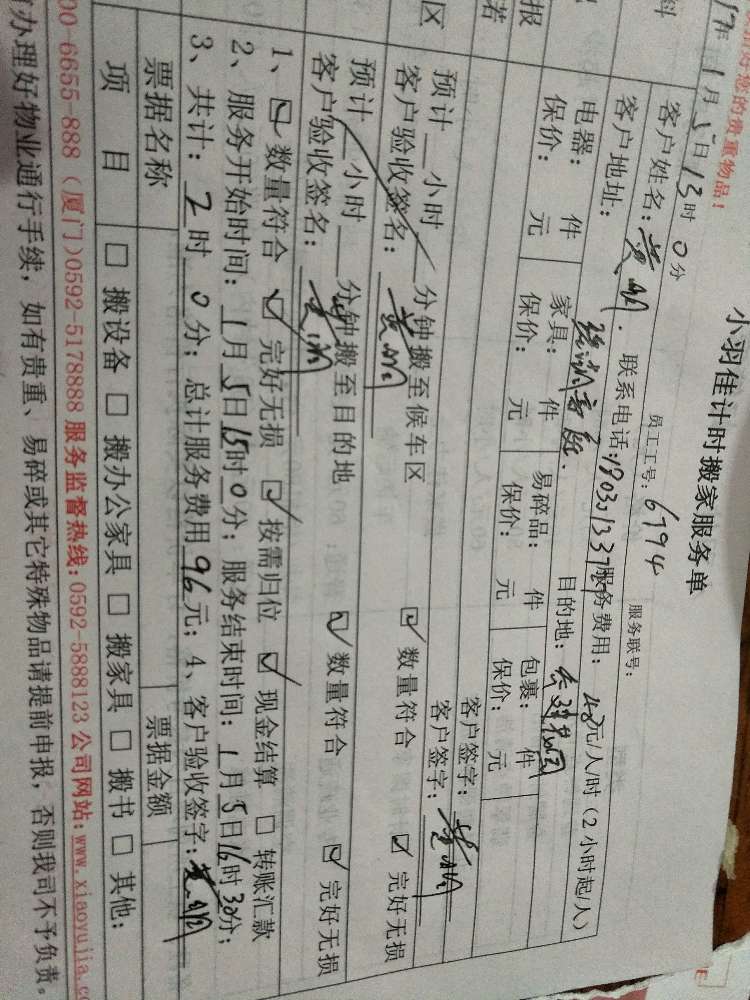 好您的贵重物品!
小羽佳计时搬家服务单
17年1月5日13时0分
员工工号: 6794
服务联号:
料
客户姓名:
联系电话:
服务费用: 48元/人/时(2小时起/人)
客户地址:
目的地:
报
电器: 件
家具: 件
易碎品: 件
包裹: 件
客户签字:
若
保价: 元
保价: 元
保价: 元
保价: 元
客户签字:
区
预计__小时__分钟搬至候车区
☑数量符合
☑完好无损
客户验收签名:
预计__小时__分钟搬至目的地
☑数量符合
☑完好无损
客户验收签名:
1、☑数量符合 ☑完好无损 ☑按需归位 ☑现金结算 □转账汇款
2、服务开始时间: 1月5日15时0分; 服务结束时间: 1月5日16时30分;
3、共计: 2时0分; 总计服务费用96元; 4、客户验收签字:
票据名称
票据金额
项 目
□搬设备 □搬办公家具 □搬家具 □搬书 □其他:
00-6655-888 (厦门)0592-5178888 服务监督热线:0592-5888123 公司网站:www.xiaoyujia.c
办理好物业通行手续,如有贵重、易碎或其它特殊物品请提前申报,否则我司不予负责。